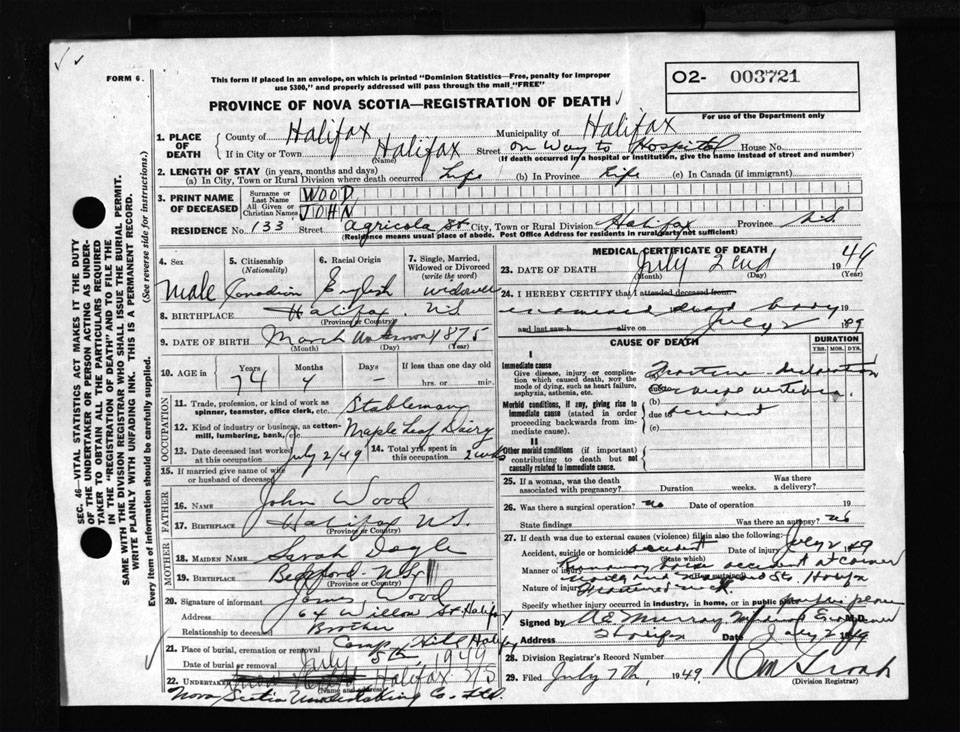 FORM 6.
This form if placed in an envelope, on which is printed "Dominion Statistics—Free, penalty for improper
use $300," and properly addressed will pass through the mail "FREE"
O2- 003721
For use of the Department only
PROVINCE OF NOVA SCOTIA—REGISTRATION OF DEATH
1. PLACE OF DEATH
County of Halifax Municipality of Halifax
If in City or Town Halifax (Name) Street on Way to Hospital House No.
(If death occurred in a hospital or institution, give the name instead of street and number)
2. LENGTH OF STAY (in years, months and days)
(a) In City, Town or Rural Division where death occurred Life (b) In Province Life (c) In Canada (if immigrant)
3. PRINT NAME OF DECEASED
Surname or Last Name WOOD
All Given or Christian Names JOHN
RESIDENCE No. 133 Street Agricola St City, Town or Rural Division Halifax Province N.S.
(Residence means usual place of abode. Post Office Address for residents in rural parts not sufficient)
4. Sex Male
5. Citizenship (Nationality) Canadian
6. Racial Origin English
7. Single, Married, Widowed or Divorced (write the word) Widower
8. BIRTHPLACE Halifax N.S.
(Province or Country)
9. DATE OF BIRTH March unknown 1875
(Month) (Day) (Year)
10. AGE Years 74 Months 4 Days – If less than one day old hrs. or min.
OCCUPATION
11. Trade, profession, or kind of work as spinner, teamster, office clerk, etc. Stableman
12. Kind of industry or business, as cotton-mill, lumbering, bank, etc. Maple Leaf Dairy
13. Date deceased last worked at this occupation July 2/49 14. Total yrs. spent in this occupation 2 wks
15. If married give name of wife or husband of deceased
FATHER
16. NAME John Wood
17. BIRTHPLACE Halifax N.S.
(Province or Country)
MOTHER
18. MAIDEN NAME Sarah Doyle
19. BIRTHPLACE Bedford N.S.
(Province or Country)
20. Signature of informant James Wood
Address 64 Willow St Halifax
Relationship to deceased Brother
21. Place of burial, cremation or removal Camp Hill Halifax
Date of burial or removal July 5th 1949
22. UNDERTAKER Halifax N/S
(Name and address)
Nova Scotia Undertaking Co. Ltd.
MEDICAL CERTIFICATE OF DEATH
23. DATE OF DEATH July 2nd 1949
(Month) (Day) (Year)
24. I HEREBY CERTIFY that I attended deceased from
examined dead body 19
and last saw h alive on July 2 1949
CAUSE OF DEATH
DURATION
YRS. MOS. DYS.
I
Immediate cause
Give disease, injury or complication which caused death, NOT the mode of dying, such as heart failure, asphyxia, asthenia, etc.
(a) Fracture dislocation
due to cervical vertebra
Morbid conditions, if any, giving rise to immediate cause (stated in order proceeding backwards from immediate cause).
(b)
due to accident
(c)
II
Other morbid conditions (if important) contributing to death but not causally related to immediate cause.
25. If a woman, was the death associated with pregnancy? Duration weeks. Was there a delivery?
26. Was there a surgical operation? no Date of operation 19
State findings Was there an autopsy? no
27. If death was due to external causes (violence) fill in also the following:
Accident, suicide or homicide accident Date of injury July 2 1949
(State which)
Manner of injury Runaway horse accident at corner
Nature of injury fractured neck
Specify whether injury occurred in industry, in home, or in public place
Signed by A E Murray Medical Examiner M.D.
Address Halifax Date July 2 1949
28. Division Registrar's Record Number
29. Filed July 7th, 1949
(Division Registrar)
SEC. 46—VITAL STATISTICS ACT MAKES IT THE DUTY
OF THE UNDERTAKER OR PERSON ACTING AS UNDERTAKER
TO OBTAIN ALL THE PARTICULARS REQUIRED
IN THE "REGISTRATION OF DEATH" AND TO FILE THE
SAME WITH THE DIVISION REGISTRAR WHO SHALL ISSUE THE BURIAL PERMIT.
WRITE PLAINLY WITH UNFADING INK. THIS IS A PERMANENT RECORD.
Every item of information should be carefully supplied. (See reverse side for instructions.)